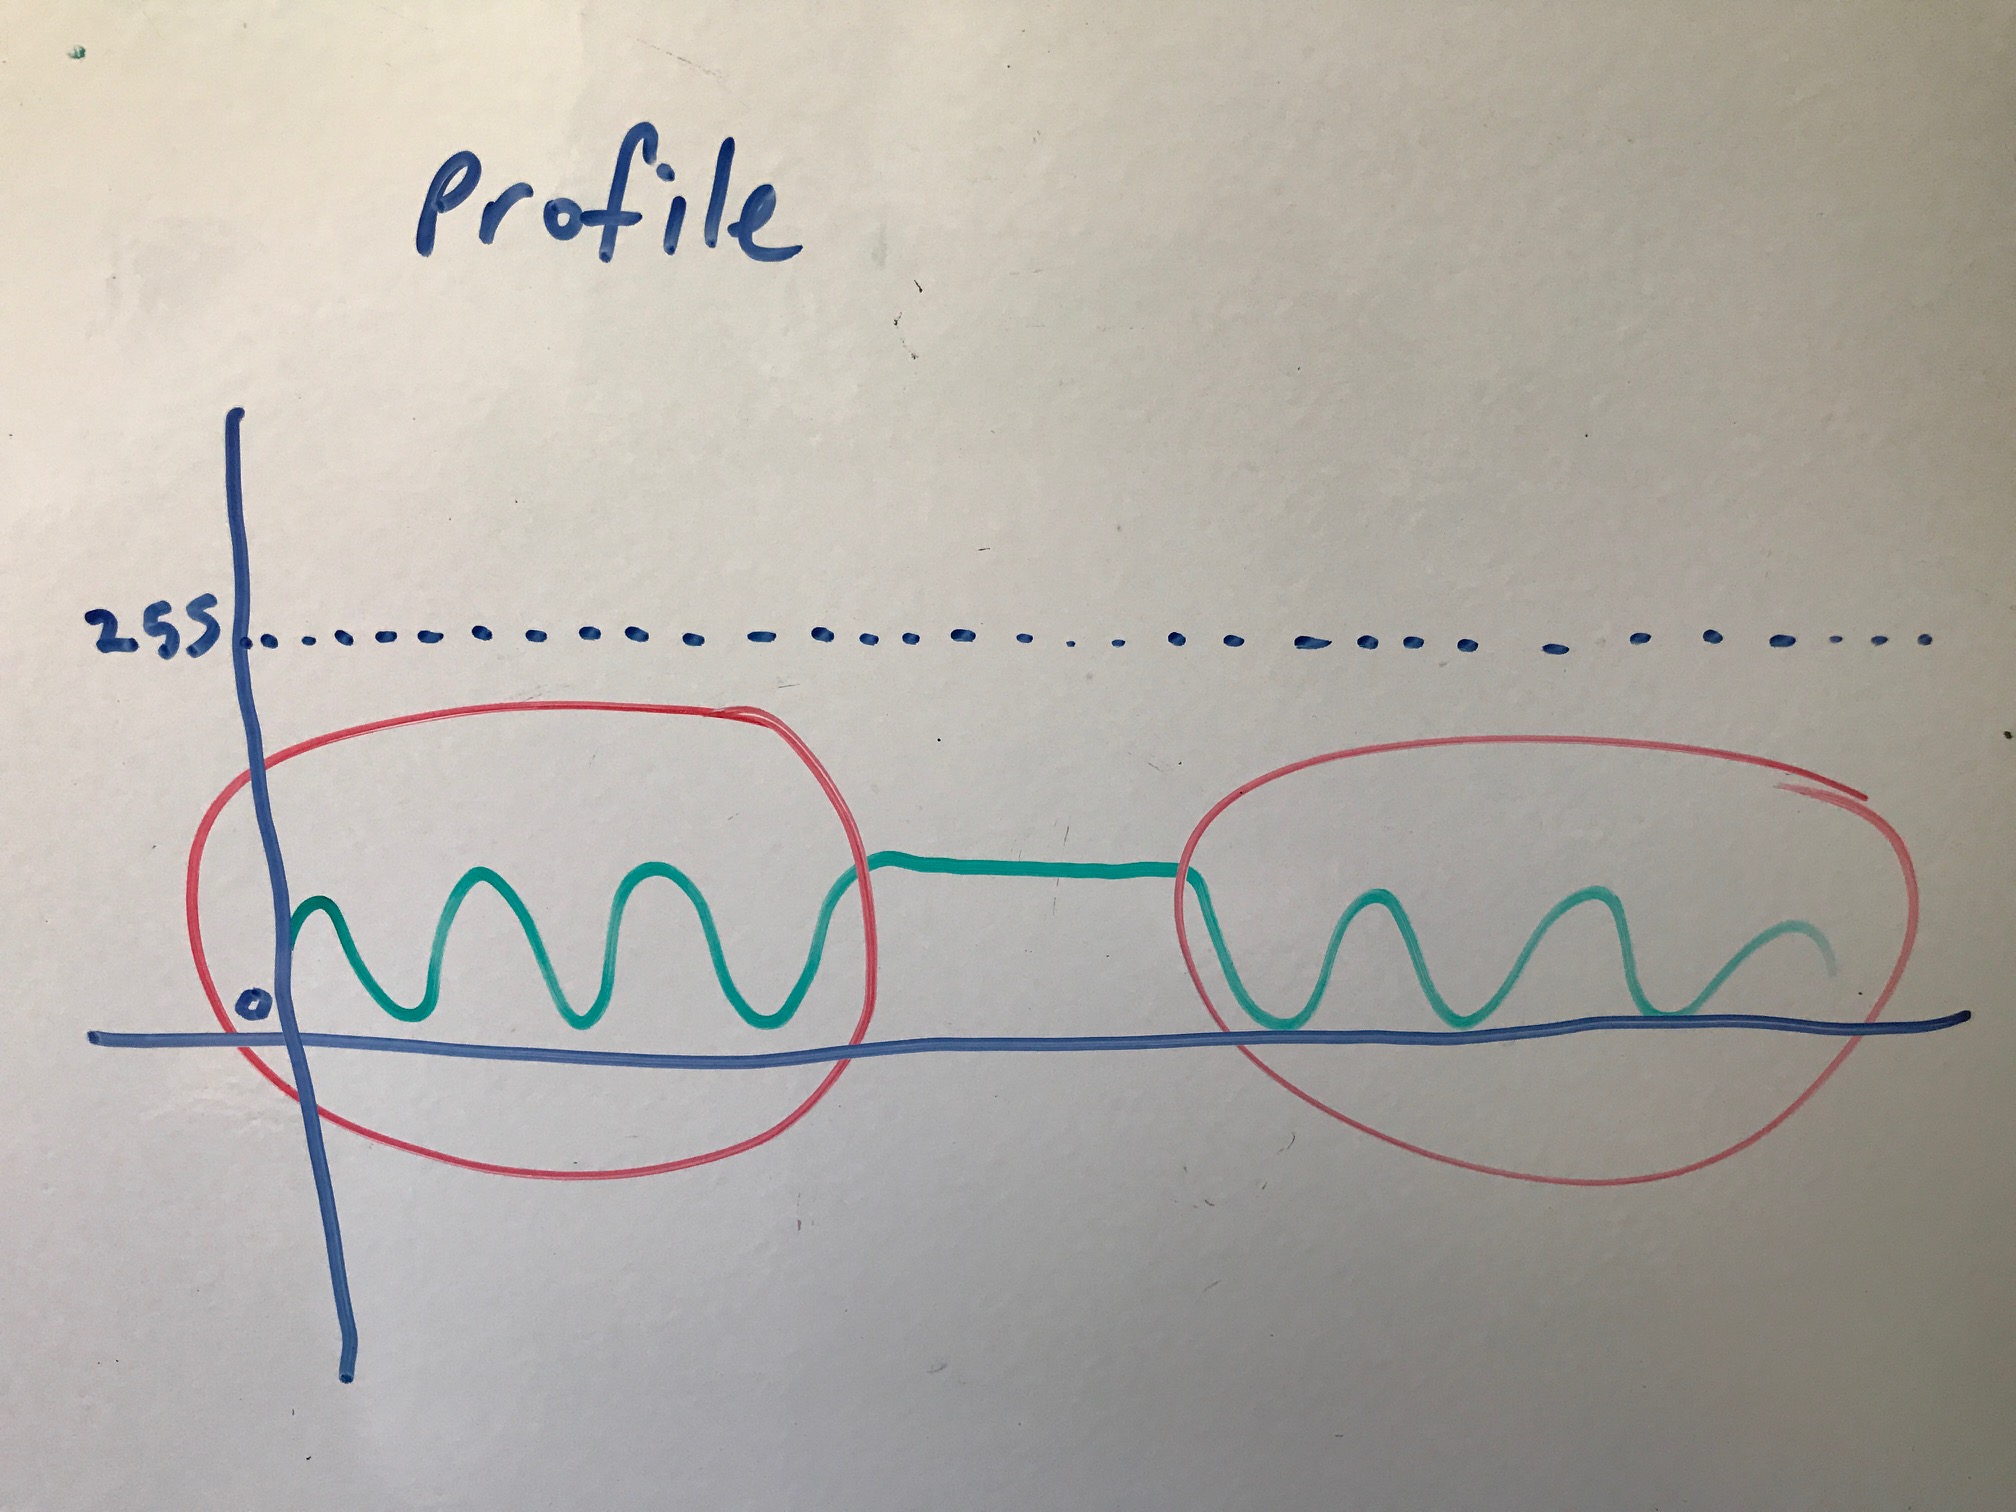 Profile
255
0